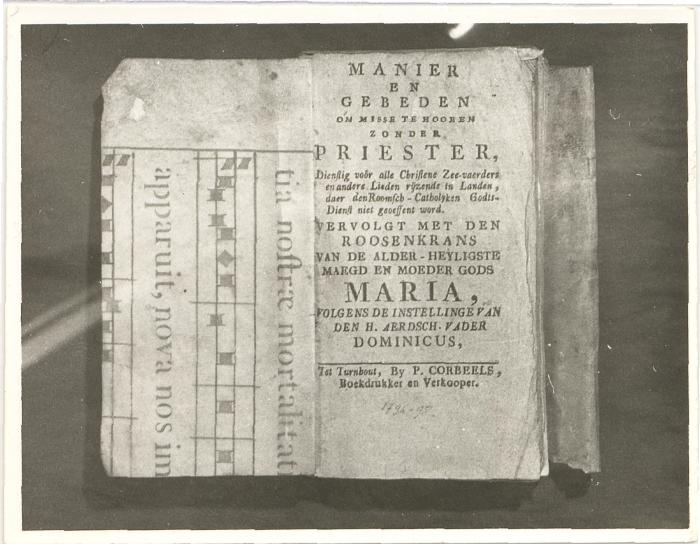 apparuit, nova nos im
tia nostræ mortalitat
MANIER
EN
GEBEDEN
OM MISSE TE HOOREN
ZONDER
PRIESTER,
Dienstig voôr alle Christene Zee-vaerders
en andere Lieden ryzende in Landen,
daer den Roomsch-Catholyken Godts-
Dienst niet geoeffent word.
VERVOLGT MET DEN
ROOSENKRANS
VAN DE ALDER-HEYLIGSTE
MAEGD EN MOEDER GODS
MARIA,
VOLGENS DE INSTELLINGE VAN
DEN H. AERDSCH-VADER
DOMINICUS,
Tot Turnhout, By P. CORBEELS,
Boekdrukker en Verkooper.